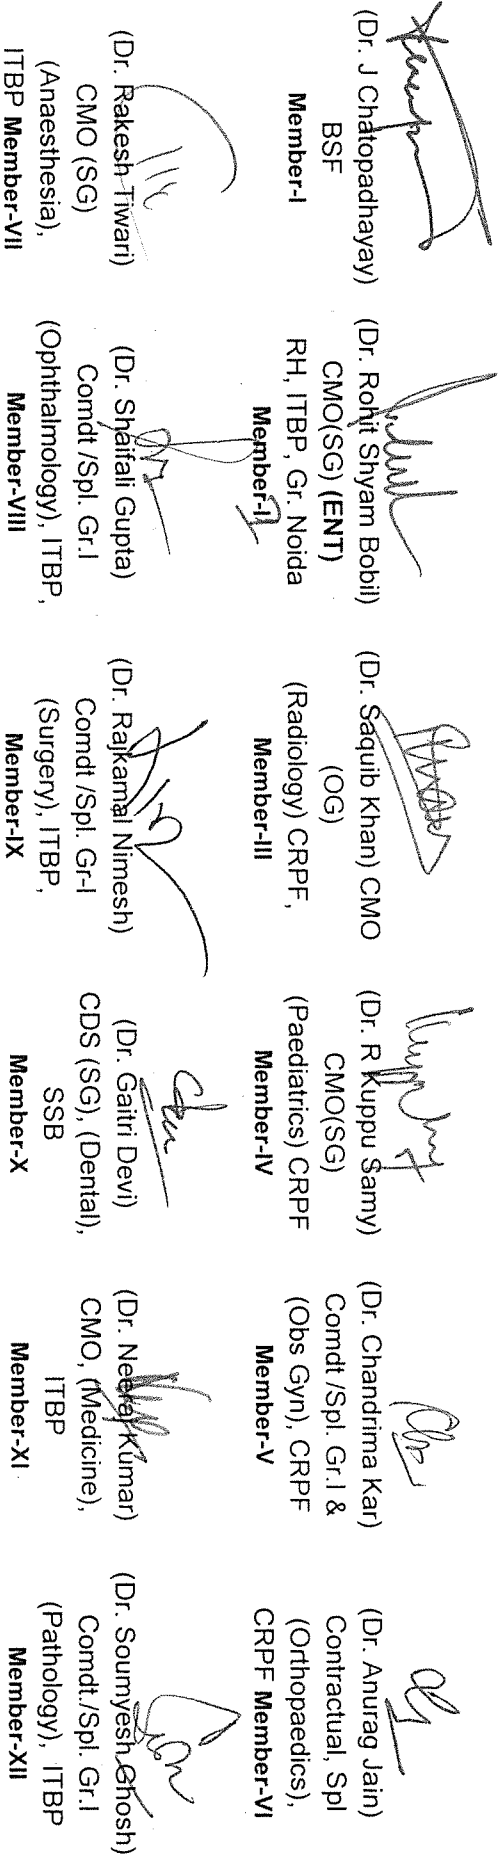 (Dr. J Chatopadhayay)
BSF
Member-I
(Dr. Rohit Shyam Bobil)
CMO(SG) (ENT)
RH, ITBP, Gr. Noida
Member-II
(Dr. Saquib Khan) CMO
(OG)
(Radiology) CRPF,
Member-III
(Dr. R Kuppu Samy)
CMO(SG)
(Paediatrics) CRPF
Member-IV
(Dr. Chandrima Kar)
Comdt /Spl. Gr.I &
(Obs Gyn), CRPF
Member-V
(Dr. Anurag Jain)
Contractual, Spl
(Orthopaedics),
CRPF Member-VI
(Dr. Rakesh Tiwari)
CMO (SG)
(Anaesthesia),
ITBP Member-VII
(Dr. Shaifali Gupta)
Comdt /Spl. Gr.I
(Ophthalmology), ITBP,
Member-VIII
(Dr. Rajkamal Nimesh)
Comdt /Spl. Gr-I
(Surgery), ITBP,
Member-IX
(Dr. Gaitri Devi)
CDS (SG), (Dental),
SSB
Member-X
(Dr. Neeraj Kumar)
CMO, (Medicine),
ITBP
Member-XI
(Dr. Soumyesh Ghosh)
Comdt./Spl. Gr.I
(Pathology), ITBP
Member-XII